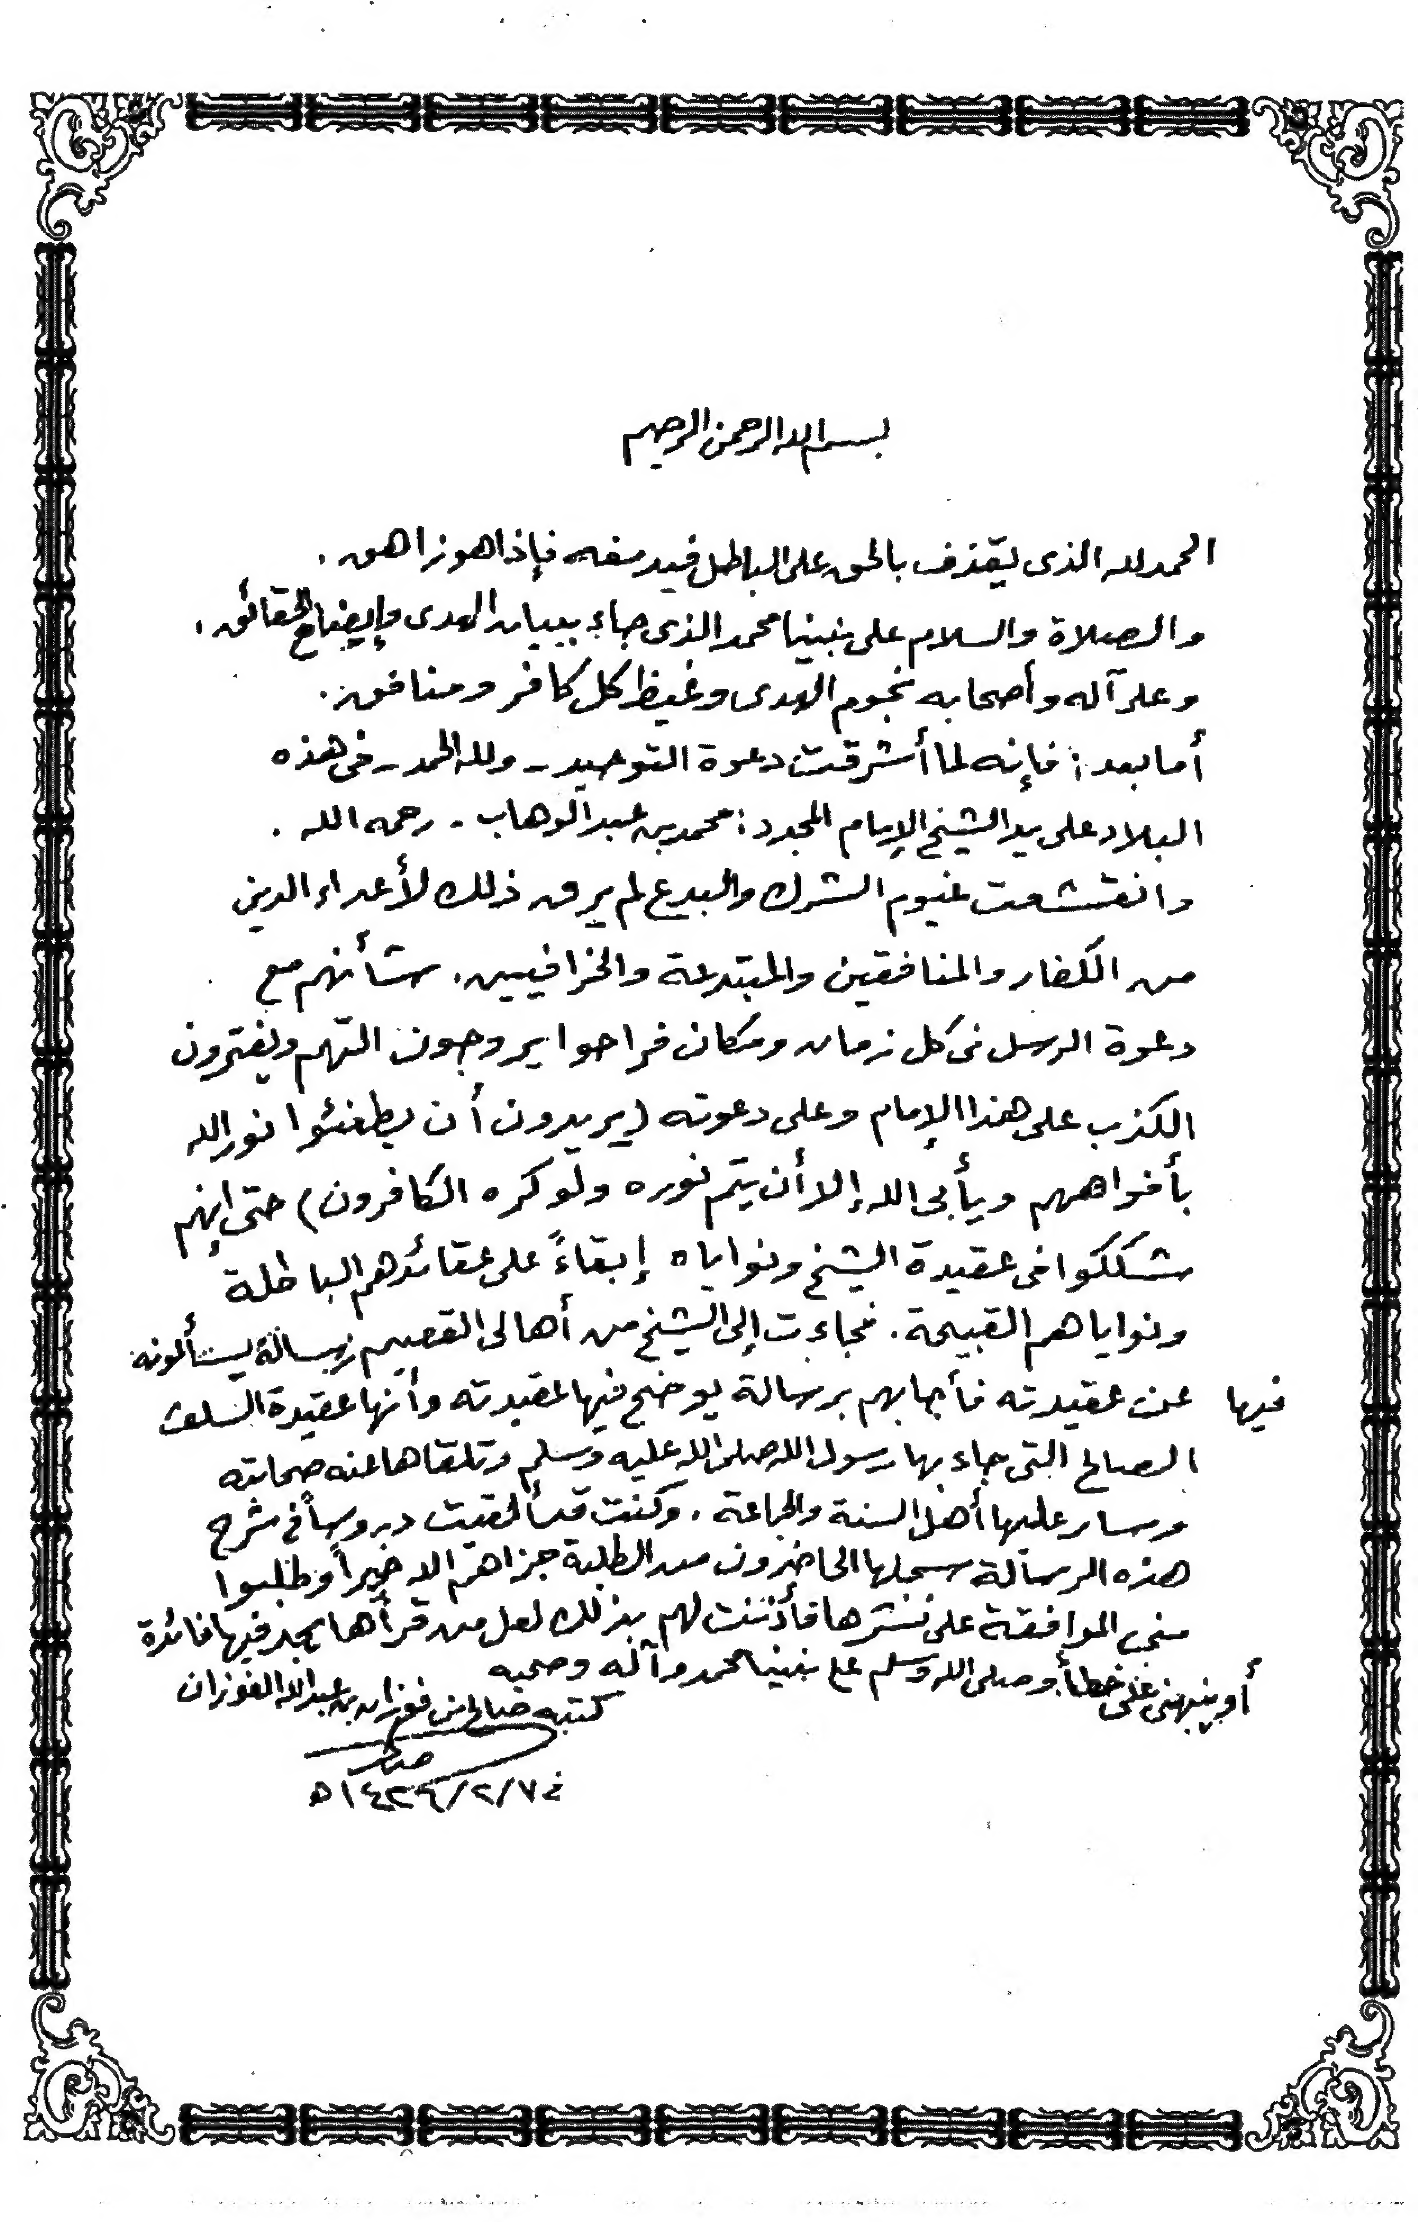 بسم الله الرحمن الرحيم
الحمد لله الذى يقذف بالحق على الباطل فيدمغه فإذا هو زاهق .
والصلاة والسلام على نبينا محمد الذى جاء ببيان الهدى وإيضاح الحقائق .
وعلى آله وأصحابه نجوم الهدى وغيظ كل كافر ومنافق .
أما بعد : فإنه لما أشرقت دعوة التوحيد - ولله الحمد - فى هذه
البلاد على يد الشيخ الإمام المجدد : محمد بن عبد الوهاب - رحمه الله .
وانقشعت غيوم الشرك والبدع لم يرق ذلك لأعداء الدين
من الكفار والمنافقين والمبتدعة والخرافيين . شأنهم مع
دعوة الرسل فى كل زمان ومكان فراحوا يروجون التهم ويفترون
الكذب على هذا الإمام وعلى دعوته (يريدون أن يطفئوا نور الله
بأفواههم ويأبى الله إلا أن يتم نوره ولو كره الكافرون) حتى إنهم
شككوا فى عقيدة الشيخ ونواياه إبقاءً على عقائدهم الباطلة
ونواياهم القبيحة . فجاءت إلى الشيخ من أهالى القصيم رسالة يسألونه
فيها عن عقيدته فأجابهم برسالة يوضح فيها عقيدته وأنها عقيدة السلف
الصالح التى جاء بها رسول الله صلى الله عليه وسلم وتلقاها عنه صحابته
وسار عليها أهل السنة والجماعة . وكنت قد ألقيت دروساً في شرح
هذه الرسالة سجلها الحاضرون من الطلبة جزاهم الله خيراً وطلبوا
منى الموافقة على نشرها فأذنت لهم بذلك لعل من قرأها يجد فيها فائدة
أو ينبهنى على خطأ . وصلى الله وسلم على نبينا محمد وآله وصحبه
كتبه صالح بن فوزان بن عبد الله الفوزان
في ١٤٢٦/٢/٧ هـ